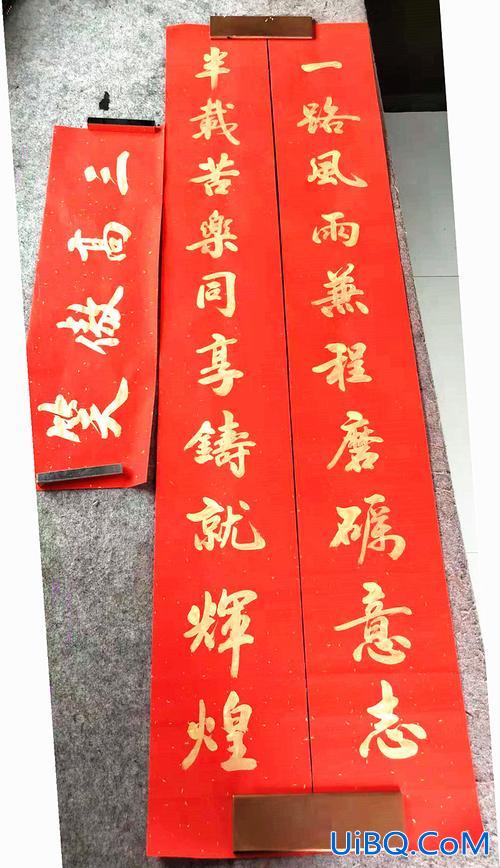 一路風雨兼程磨礪意志
半載苦樂同享鑄就輝煌
笑傲高三
UiBQ.CoM